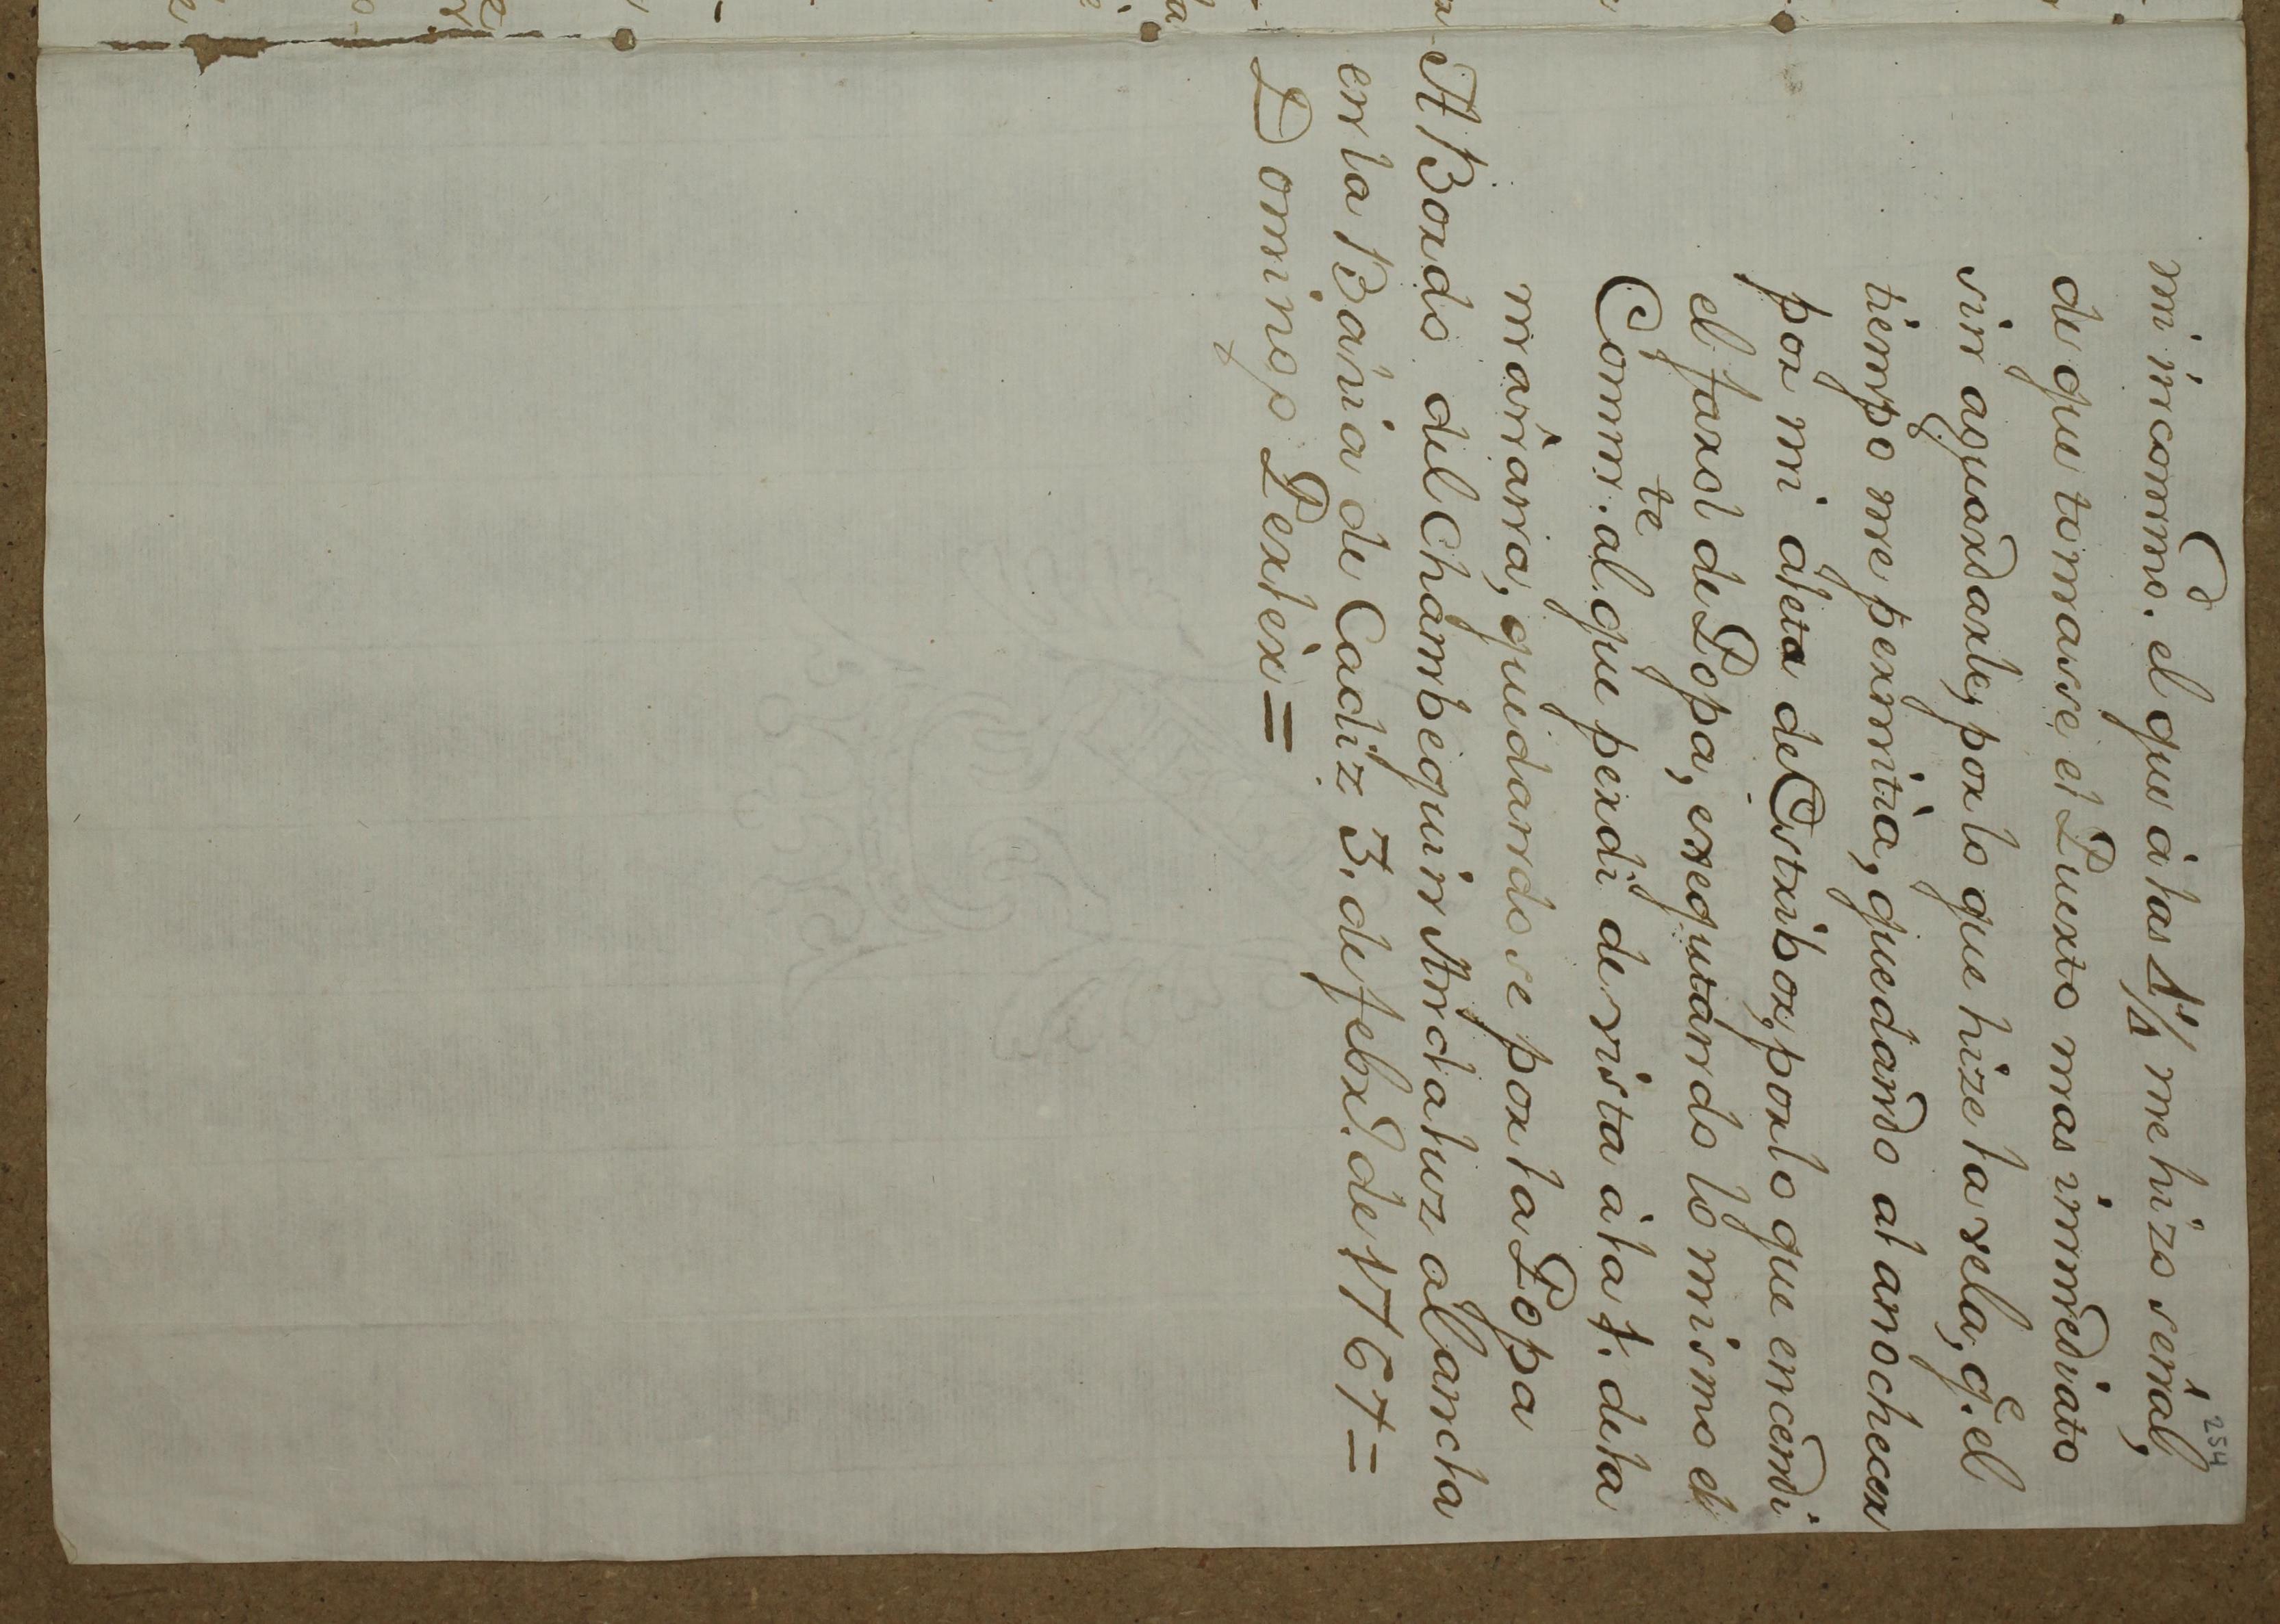 254
mi incommo. el que á las 1 1/2 me hizo señal,
de que tomasse el Puerto mas immediato
sin aguardarle, por lo que hize la vela, q.e el
tiempo me permitia, quedando al anochecer
por mi aleta de Estribor, por lo que encendi
el farol de Popa, exequtando lo mismo el
Comm.te al que perdi de vista á la 1. de la
mañana, quedandose por la Popa
A Bordo del Chambequin Andaluz al ancla
en la Bània de Cadiz 3. de febr.o de 1767=
Domingo Perler=